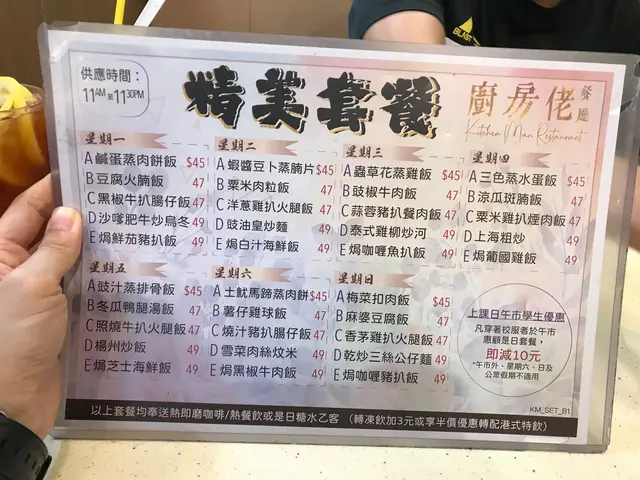 BLAST
供應時間：
11AM至11:30PM
精美套餐
廚房佬
餐廳
Kitchen Man Restaurant
星期一
A 鹹蛋蒸肉餅飯 $45
B 豆腐火腩飯 47
C 黑椒牛扒腸仔飯 47
D 沙嗲肥牛炒烏冬 49
E 焗鮮茄豬扒飯 49
星期二
A 蝦醬豆卜蒸腩片 $45
B 粟米肉粒飯 47
C 洋蔥雞扒火腿飯 47
D 豉油皇炒麵 49
E 焗白汁海鮮飯 49
星期三
A 蟲草花蒸雞飯 $45
B 豉椒牛肉飯 47
C 蒜蓉豬扒餐肉飯 47
D 泰式雞柳炒河 49
E 焗咖喱魚扒飯 49
星期四
A 三色蒸水蛋飯 $45
B 涼瓜斑腩飯 47
C 粟米雞扒煙肉飯 47
D 上海粗炒 49
E 焗葡國雞飯 49
星期五
A 豉汁蒸排骨飯 $45
B 冬瓜鴨腿湯飯 47
C 照燒牛扒火腿飯 47
D 楊州炒飯 49
E 焗芝士海鮮飯 49
星期六
A 土魷馬蹄蒸肉餅 $45
B 薯仔雞球飯 47
C 燒汁豬扒腸仔飯 47
D 雪菜肉絲炆米 49
E 焗黑椒牛肉飯 49
星期日
A 梅菜扣肉飯 $45
B 麻婆豆腐飯 47
C 香茅雞扒火腿飯 47
D 乾炒三絲公仔麵 49
E 焗咖喱豬扒飯 49
上課日午市學生優惠
凡穿著校服者於午市
惠顧是日套餐，
即減10元
*午市外、星期六、日及
公眾假期不適用
KM_SET_B1
以上套餐均奉送熱即磨咖啡/熱餐飲或是日糖水乙客 （轉凍飲加3元或享半價優惠轉配港式特飲）